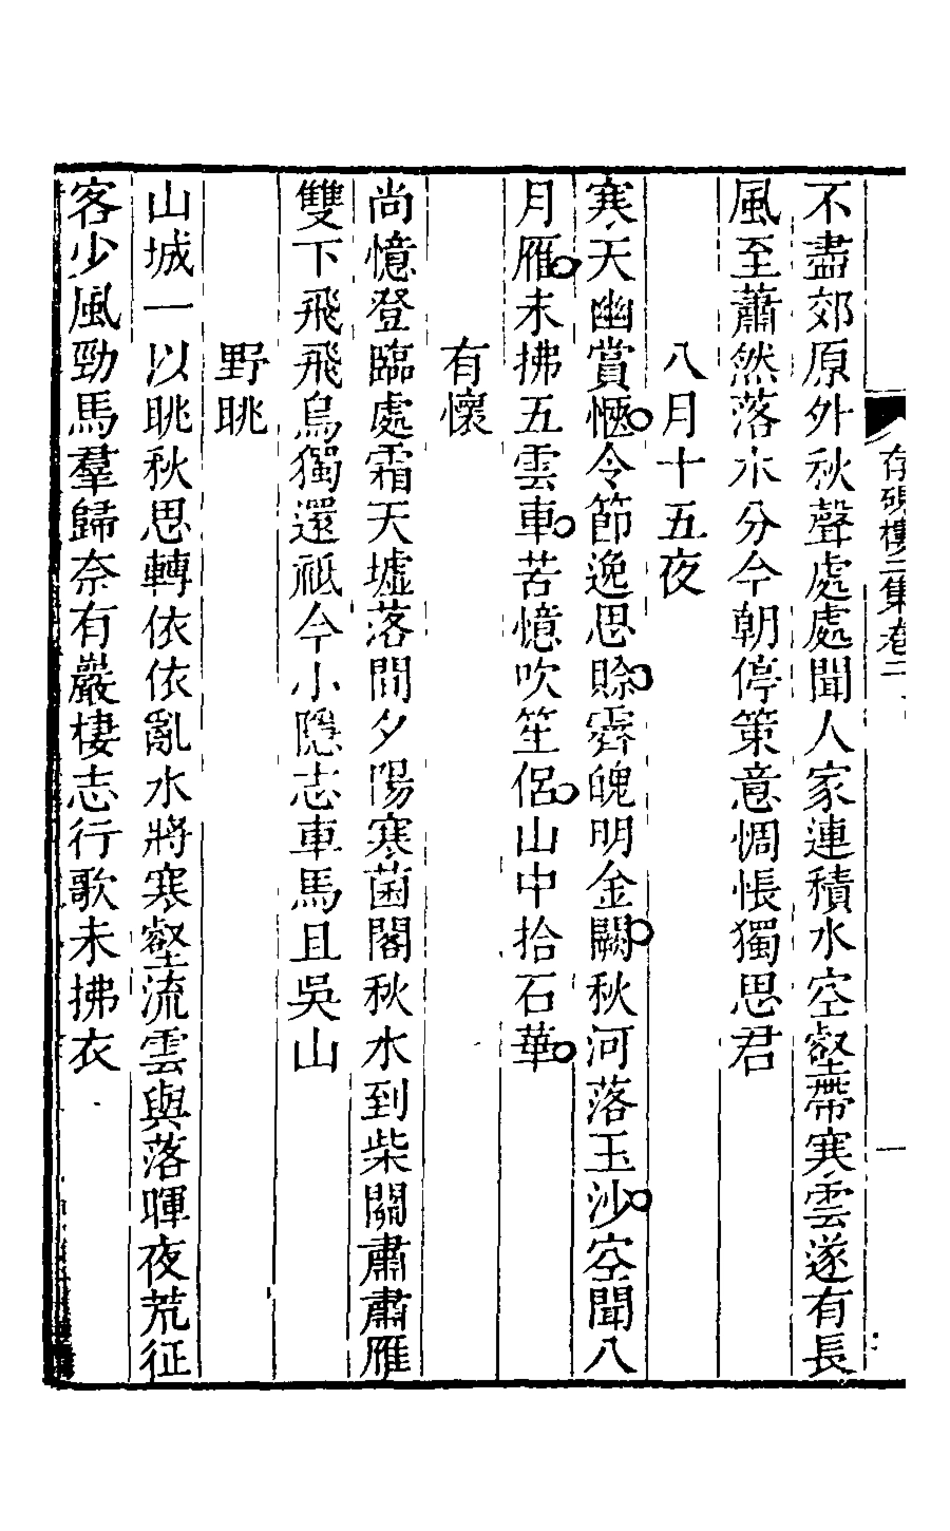 存硯樓二集卷二
一
不盡郊原外秋聲處處聞人家連積水空壑帶寒雲遂有長
風至蕭然落木分今朝停策意惆悵獨思君
八月十五夜
寒天幽賞愜令節逸思賒霽魄明金闕秋河落玉沙空聞八
月雁未拂五雲車苦憶吹笙侶山中拾石華
有懷
尚憶登臨處霜天墟落間夕陽寒菌閣秋水到柴關肅肅雁
雙下飛飛烏獨還祗今小隱志車馬且吳山
野眺
山城一以眺秋思轉依依亂水將寒壑流雲與落暉夜荒征
客少風勁馬羣歸奈有巖棲志行歌未拂衣